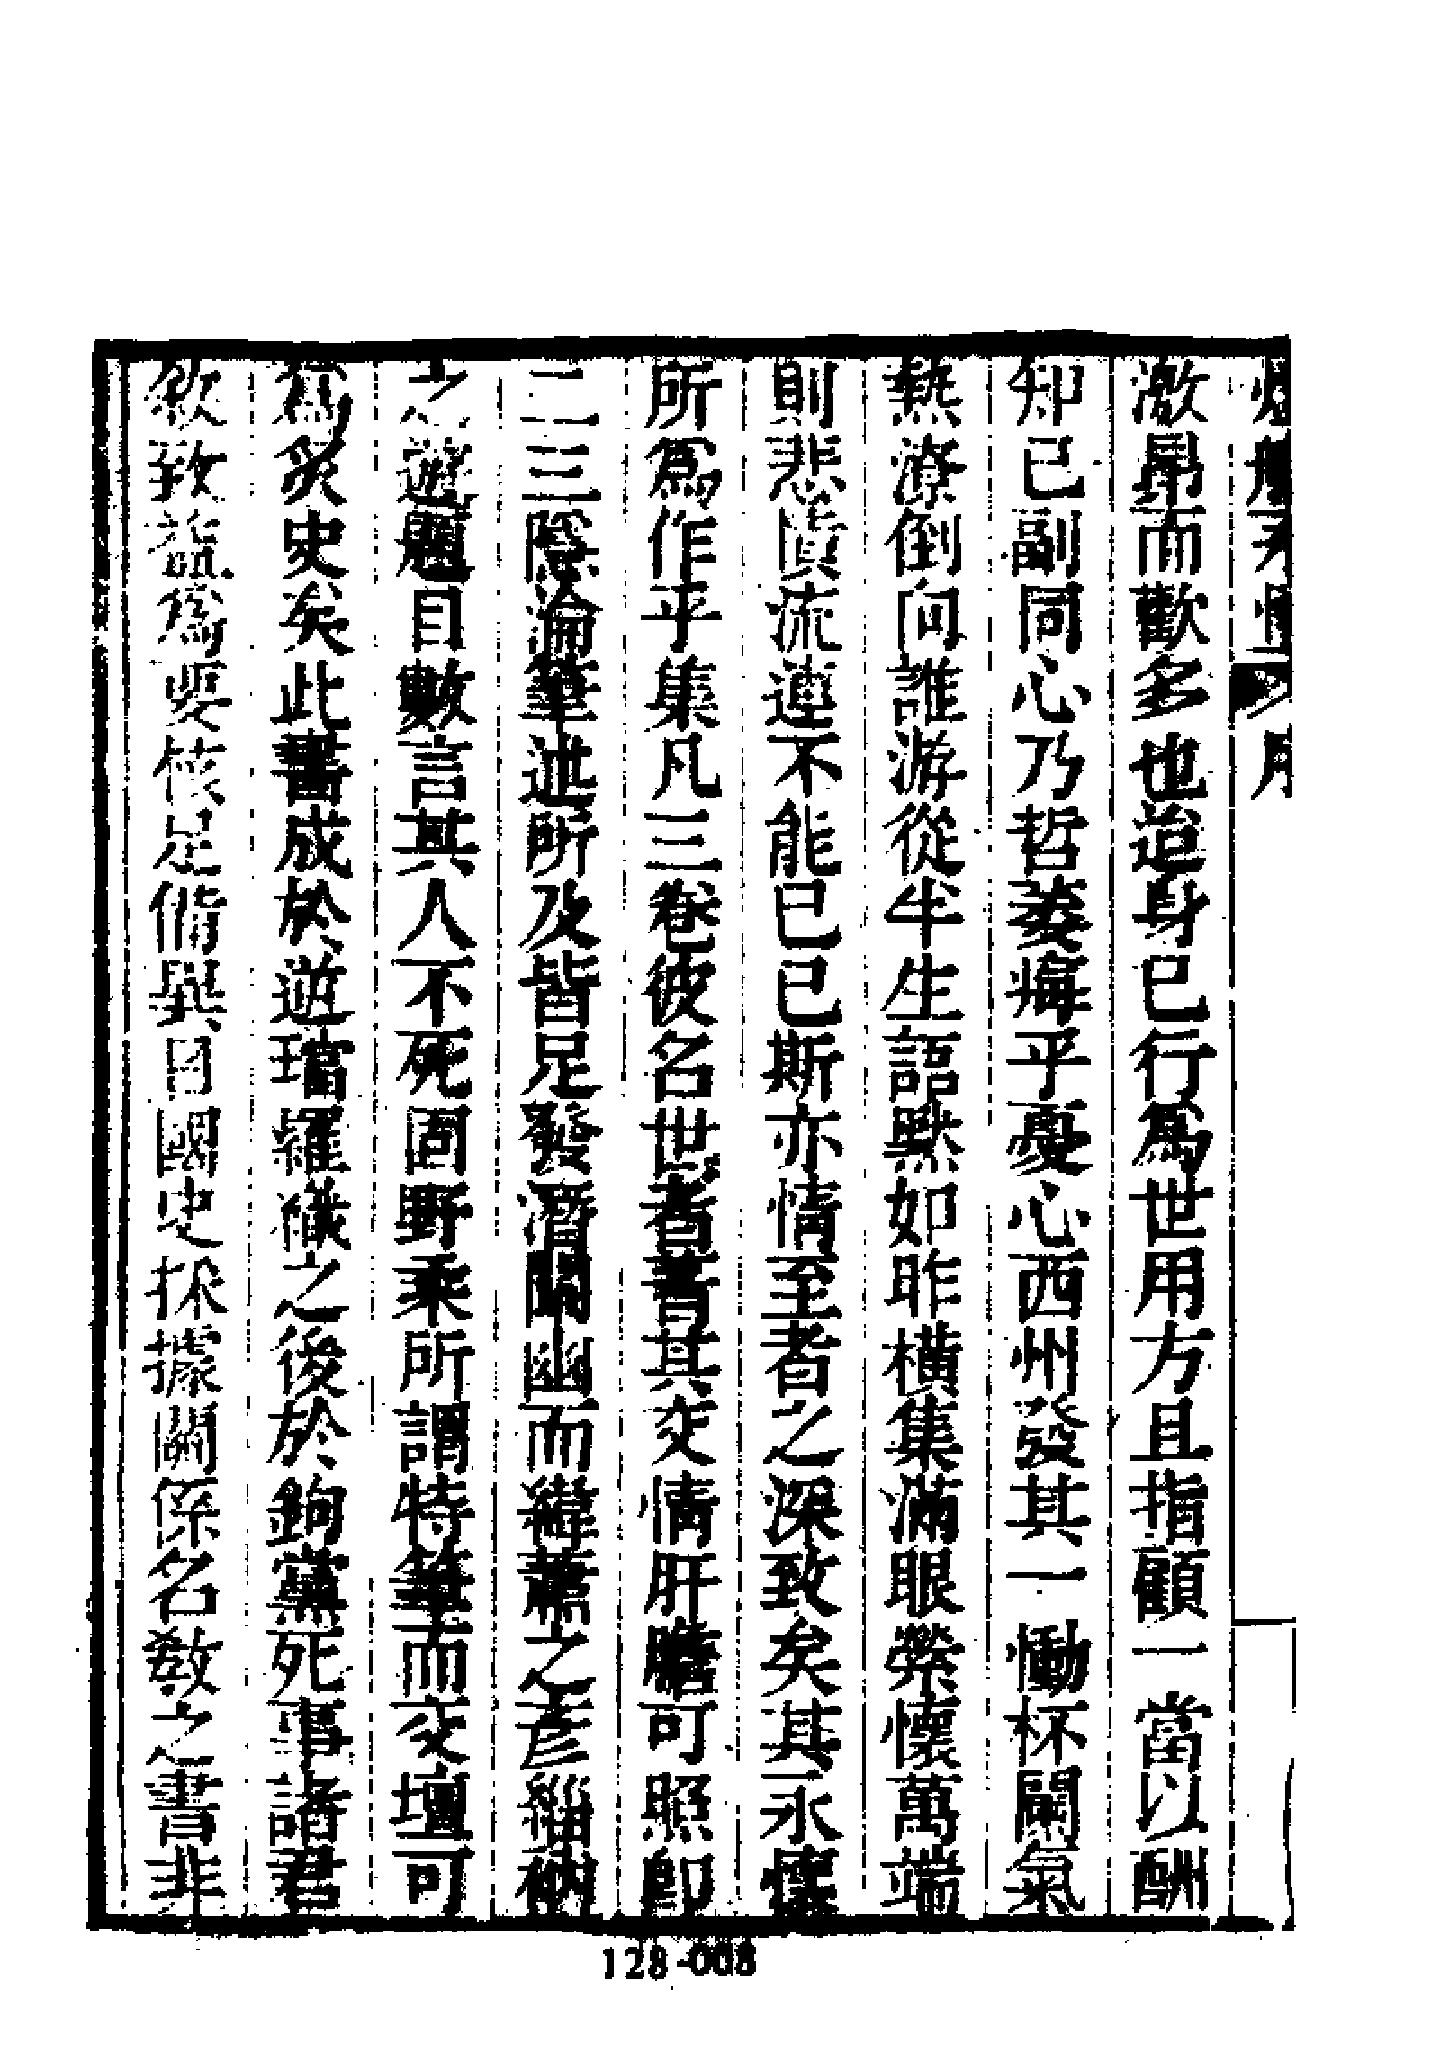 序
激昂而歡多也迨身已行爲世用方且指顧一當以酬
知已副同心乃哲萎痗乎憂心西州發其一慟杯闌氣
熱潦倒向誰游從半生語默如昨橫集滿眼縈懷萬端
則悲憤流連不能已已斯亦情至者之深致矣其永懷
所爲作乎集凡三卷彼名世者著其交情肝膽可照卽
二三隱淪筆述所及皆足發潛闡幽而緯蕭之彥緇衲
之遊題目數言其人不死固野乘所謂特筆而交壇可
爲炙史矣此書成於遊璫羅織之後於鉤黨死事諸君
敘致益爲要核足偕與目國史採據關係名教之書非
128-008